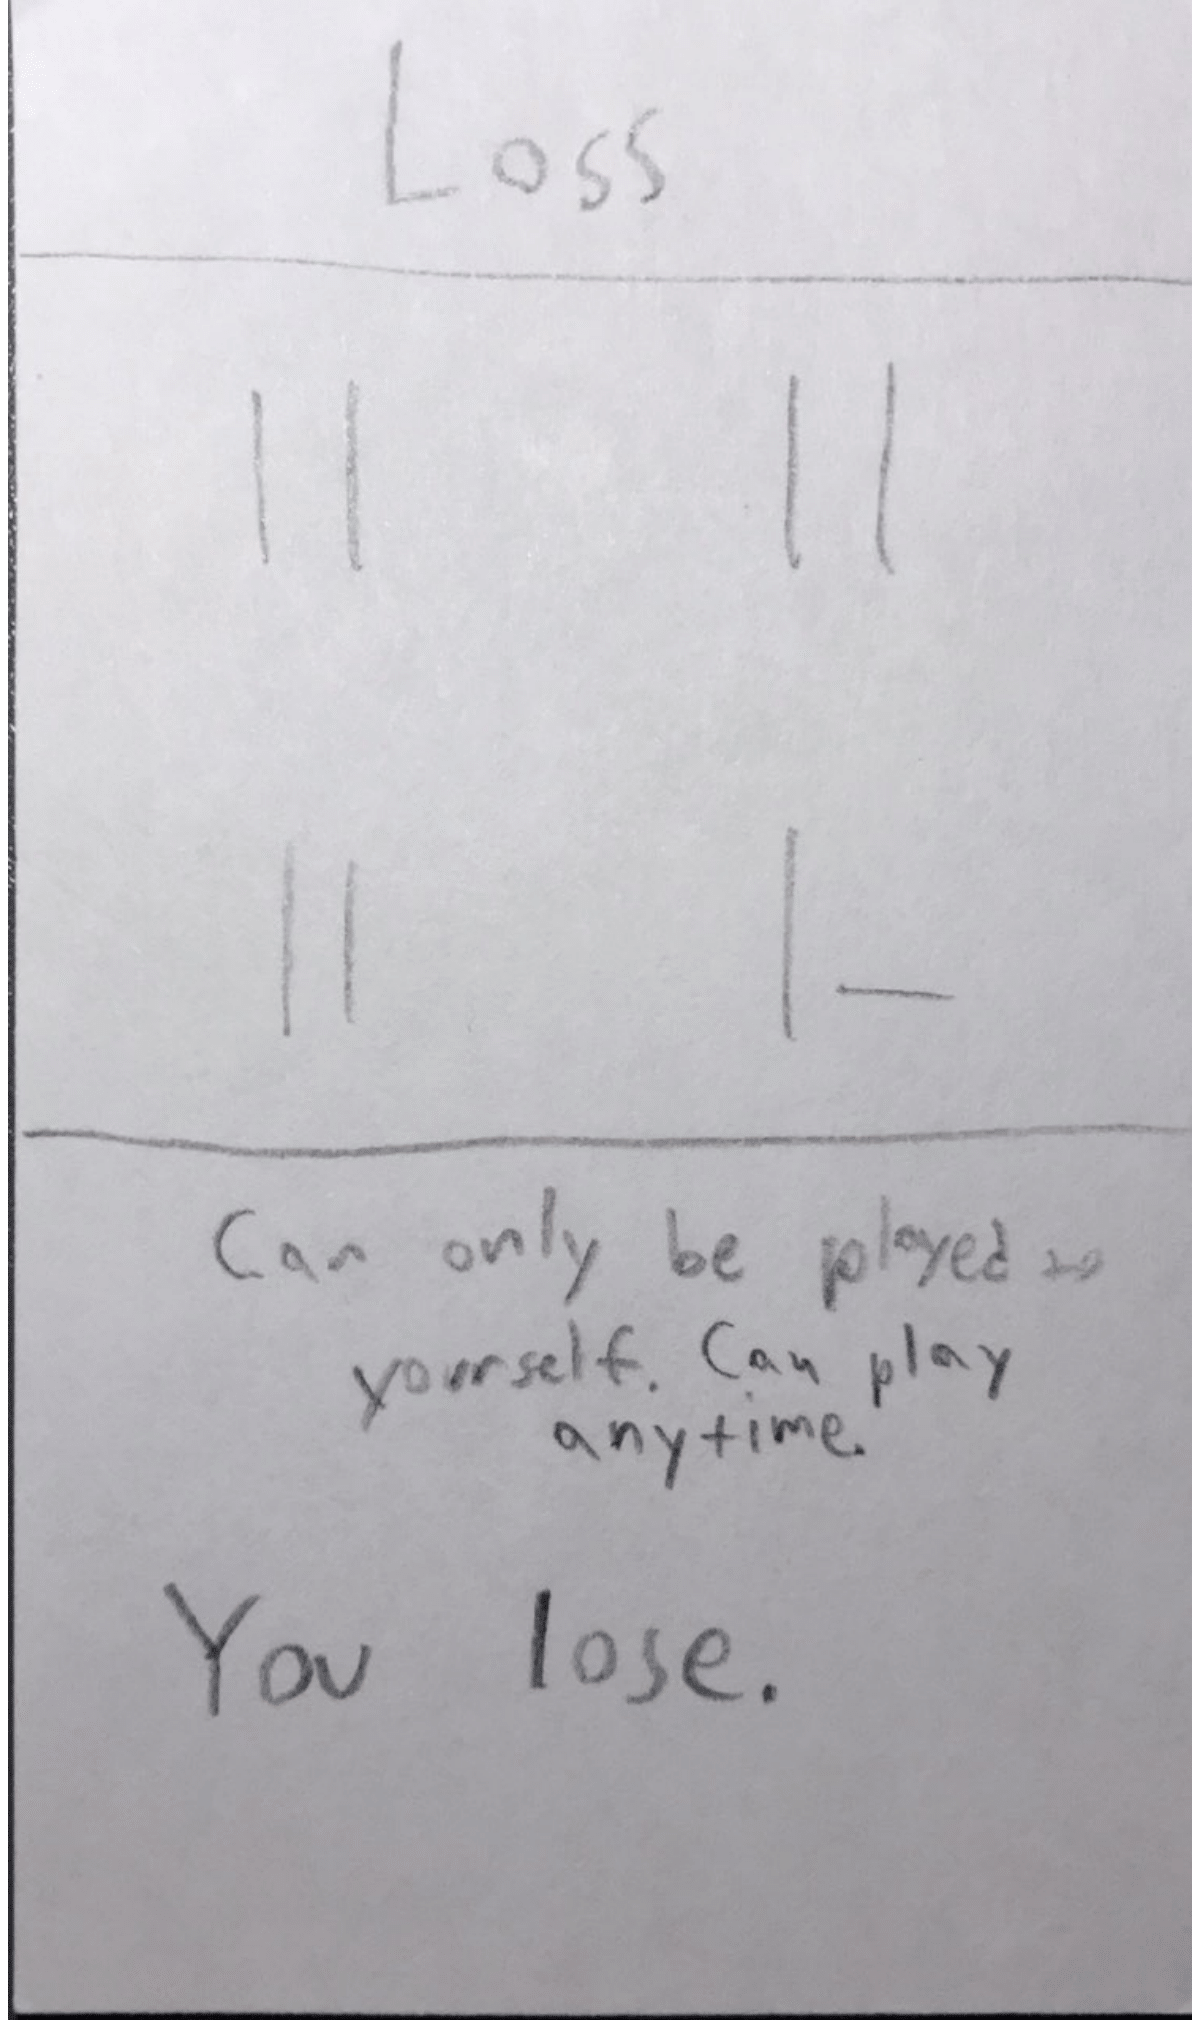 Loss
Can only be played to
yourself. Can play
anytime.
You lose.